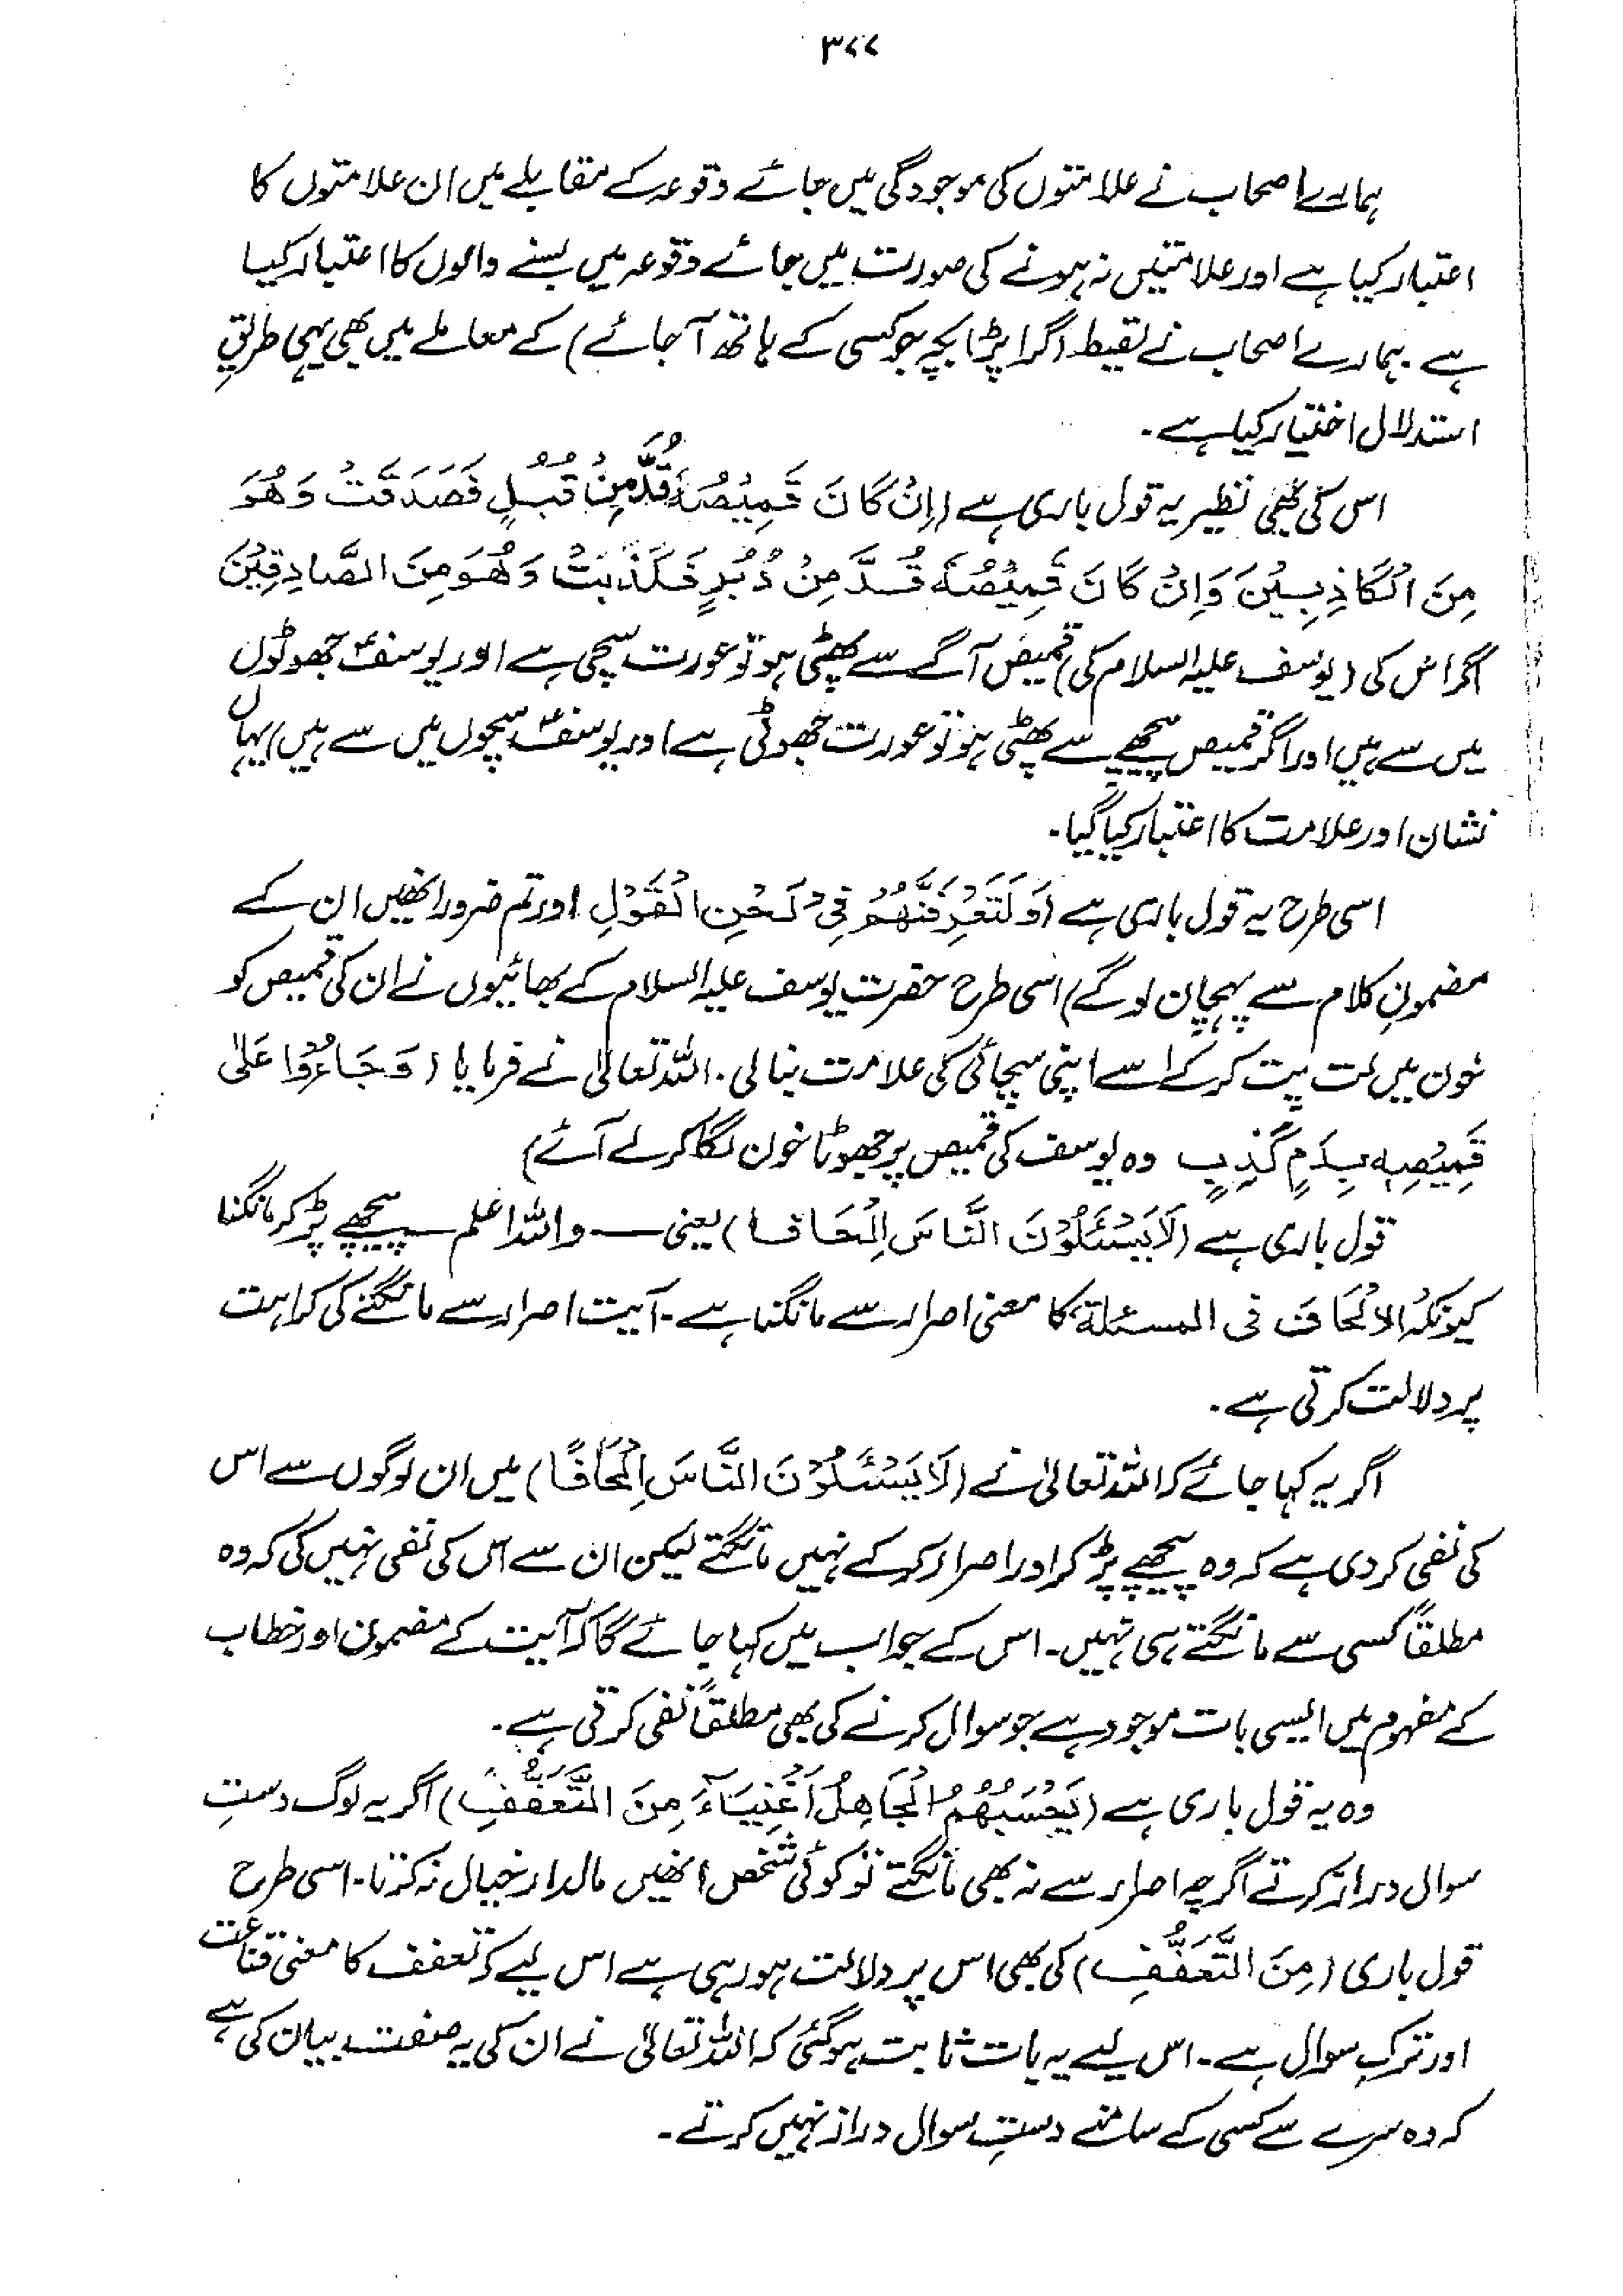 ۳۷۷
ہمارے اصحاب نے علامتوں کی موجودگی میں جائے وقوعہ کے مقابلے میں ان علامتوں کا
اعتبار کیا ہے اور علامتیں نہ ہونے کی صورت میں جائے وقوعہ میں بسنے والوں کا اعتبار کیا
ہے۔ ہمارے اصحاب نے لقیط (گرا پڑا بچہ جو کسی کے ہاتھ آ جائے) کے معاملے میں بھی یہی طریقِ
استدلال اختیار کیا ہے۔
اس کی بھی نظیر یہ قول باری ہے (اِنْ كَانَ قَمِيْصُهٗ قُدَّ مِنْ قُبُلٍ فَصَدَقَتْ وَهُوَ
مِنَ الْكَاذِبِيْنَ وَاِنْ كَانَ قَمِيْصُهٗ قُدَّ مِنْ دُبُرٍ فَكَذَبَتْ وَهُوَ مِنَ الصَّادِقِيْنَ
اگر اس کی (یوسف علیہ السلام کی) قمیص آگے سے پھٹی ہو تو عورت سچی ہے اور یوسفؑ جھوٹوں
میں سے ہیں اور اگر قمیص پیچھے سے پھٹی ہو تو عورت جھوٹی ہے اور یوسفؑ سچوں میں سے ہیں) یہاں
نشان اور علامت کا اعتبار کیا گیا۔
اسی طرح یہ قول باری ہے (وَلَتَعْرِفَنَّهُمْ فِيْ لَحْنِ الْقَوْلِ اور تم ضرور انھیں ان کے
مضمونِ کلام سے پہچان لو گے) اسی طرح حضرت یوسف علیہ السلام کے بھائیوں نے ان کی قمیص کو
خون میں لت پت کر کے اسے اپنی سچائی کی علامت بنا لی۔ اللہ تعالیٰ نے فرمایا (وَجَاءُوْا عَلٰى
قَمِيْصِهٖ بِدَمٍ كَذِبٍ وہ یوسف کی قمیص پر جھوٹا خون لگا کر لے آئے)
قول باری ہے (لَا يَسْئَلُوْنَ النَّاسَ اِلْحَافًا) یعنی — واللہ اعلم — پیچھے پڑ کر مانگنا
کیونکہ الالحاف فی المسئلة کا معنی اصرار سے مانگنا ہے۔ آیت اصرار سے مانگنے کی کراہت
پر دلالت کرتی ہے۔
اگر یہ کہا جائے کہ اللہ تعالیٰ نے (لَا يَسْئَلُوْنَ النَّاسَ اِلْحَافًا) میں ان لوگوں سے اس
کی نفی کر دی ہے کہ وہ پیچھے پڑ کر اور اصرار کر کے نہیں مانگتے لیکن ان سے اس کی نفی نہیں کی کہ وہ
مطلقاً کسی سے مانگتے ہی نہیں۔ اس کے جواب میں کہا جائے گا کہ آیت کے مضمون اور خطاب
کے مفہوم میں ایسی بات موجود ہے جو سوال کرنے کی بھی مطلقاً نفی کرتی ہے۔
وہ یہ قول باری ہے (يَحْسَبُهُمُ الْجَاهِلُ اَغْنِيَآءَ مِنَ التَّعَفُّفِ) اگر یہ لوگ دستِ
سوال دراز کرتے اگرچہ اصرار سے نہ بھی مانگتے تو کوئی شخص انھیں مالدار خیال نہ کرتا۔ اسی طرح
قول باری (مِنَ التَّعَفُّفِ) کی بھی اس پر دلالت ہو رہی ہے اس لیے کہ تعفف کا معنی قناعت
اور ترکِ سوال ہے۔ اس لیے یہ بات ثابت ہو گئی کہ اللہ تعالیٰ نے ان کی یہ صفت بیان کی ہے
کہ وہ سرے سے کسی کے سامنے دستِ سوال دراز نہیں کرتے۔